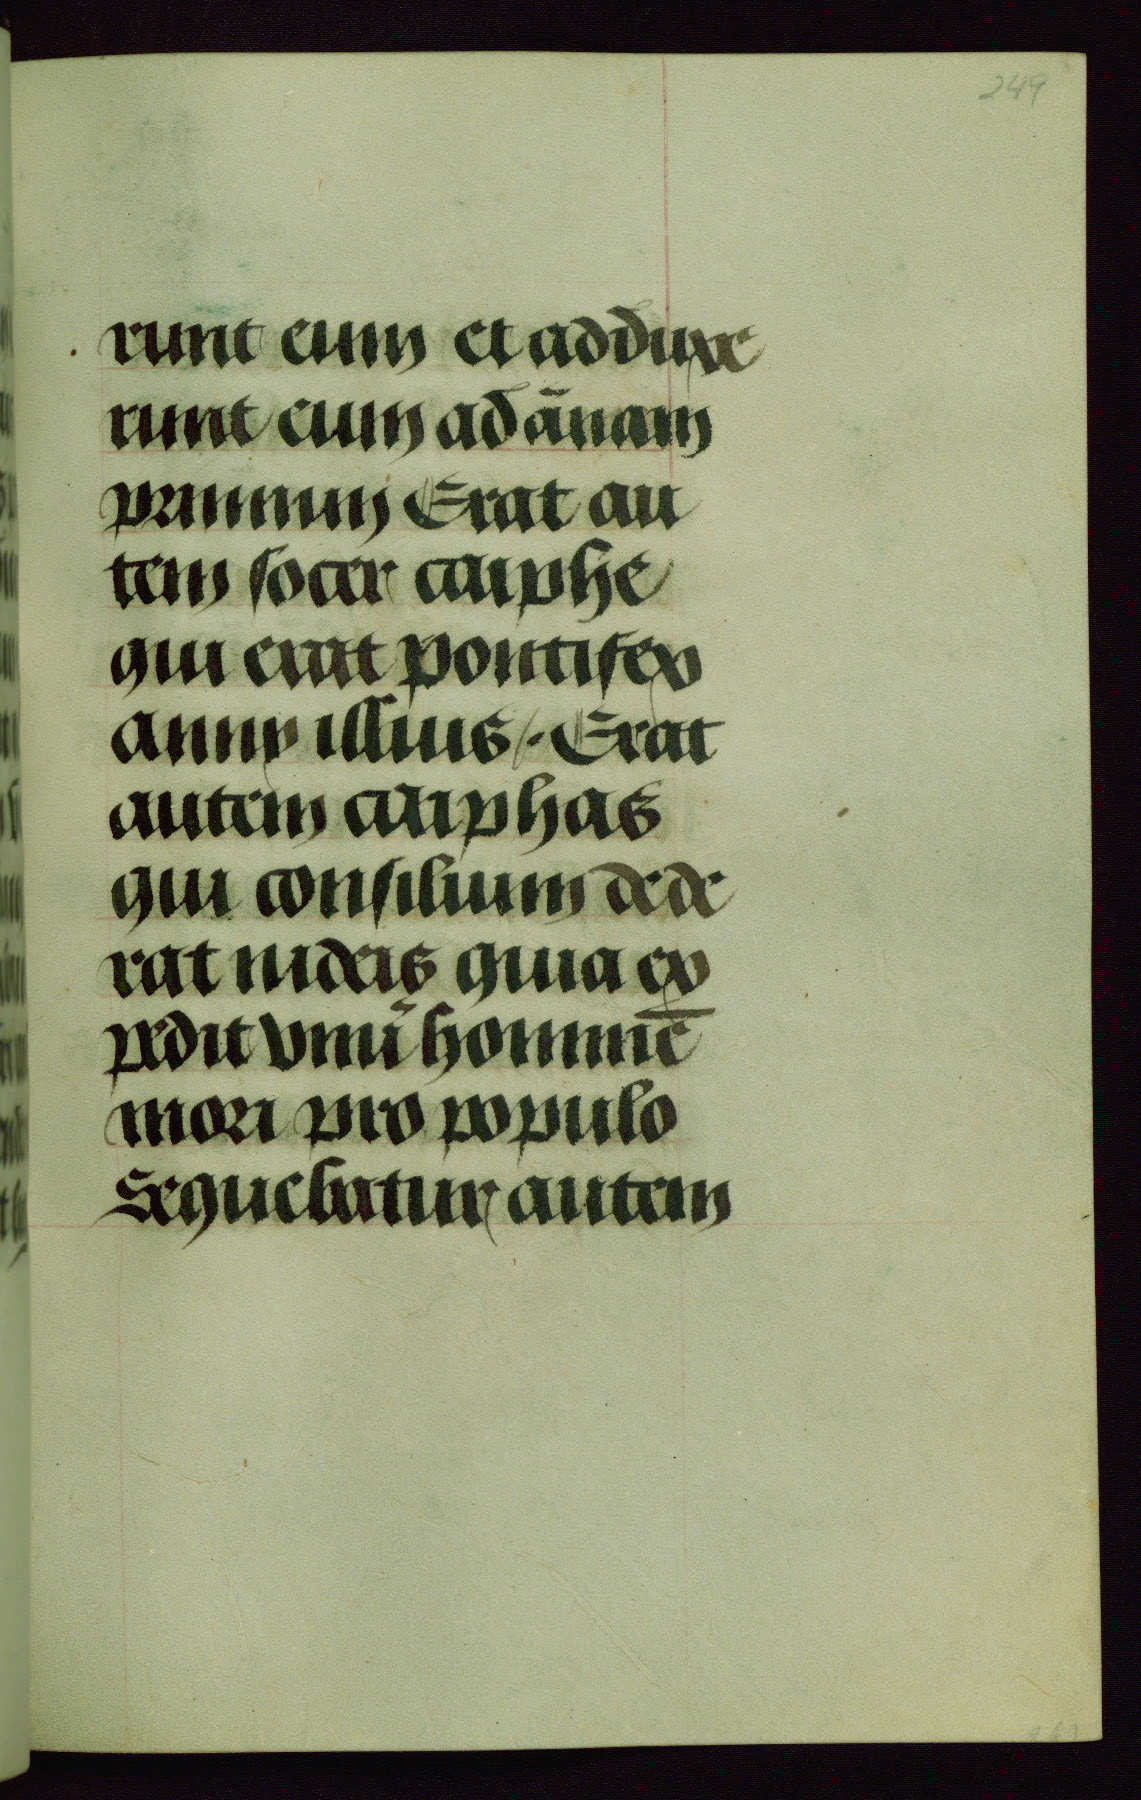 249
runt eum et adduxe
runt eum ad ānam
primum Erat au
tem socer caiphe
qui erat pontifex
anny illius /. Erat
autem caiphas
qui consilium dede
rat iudeis quia ex
pedit vnū hominē
mori pro populo
Sequebatur autem